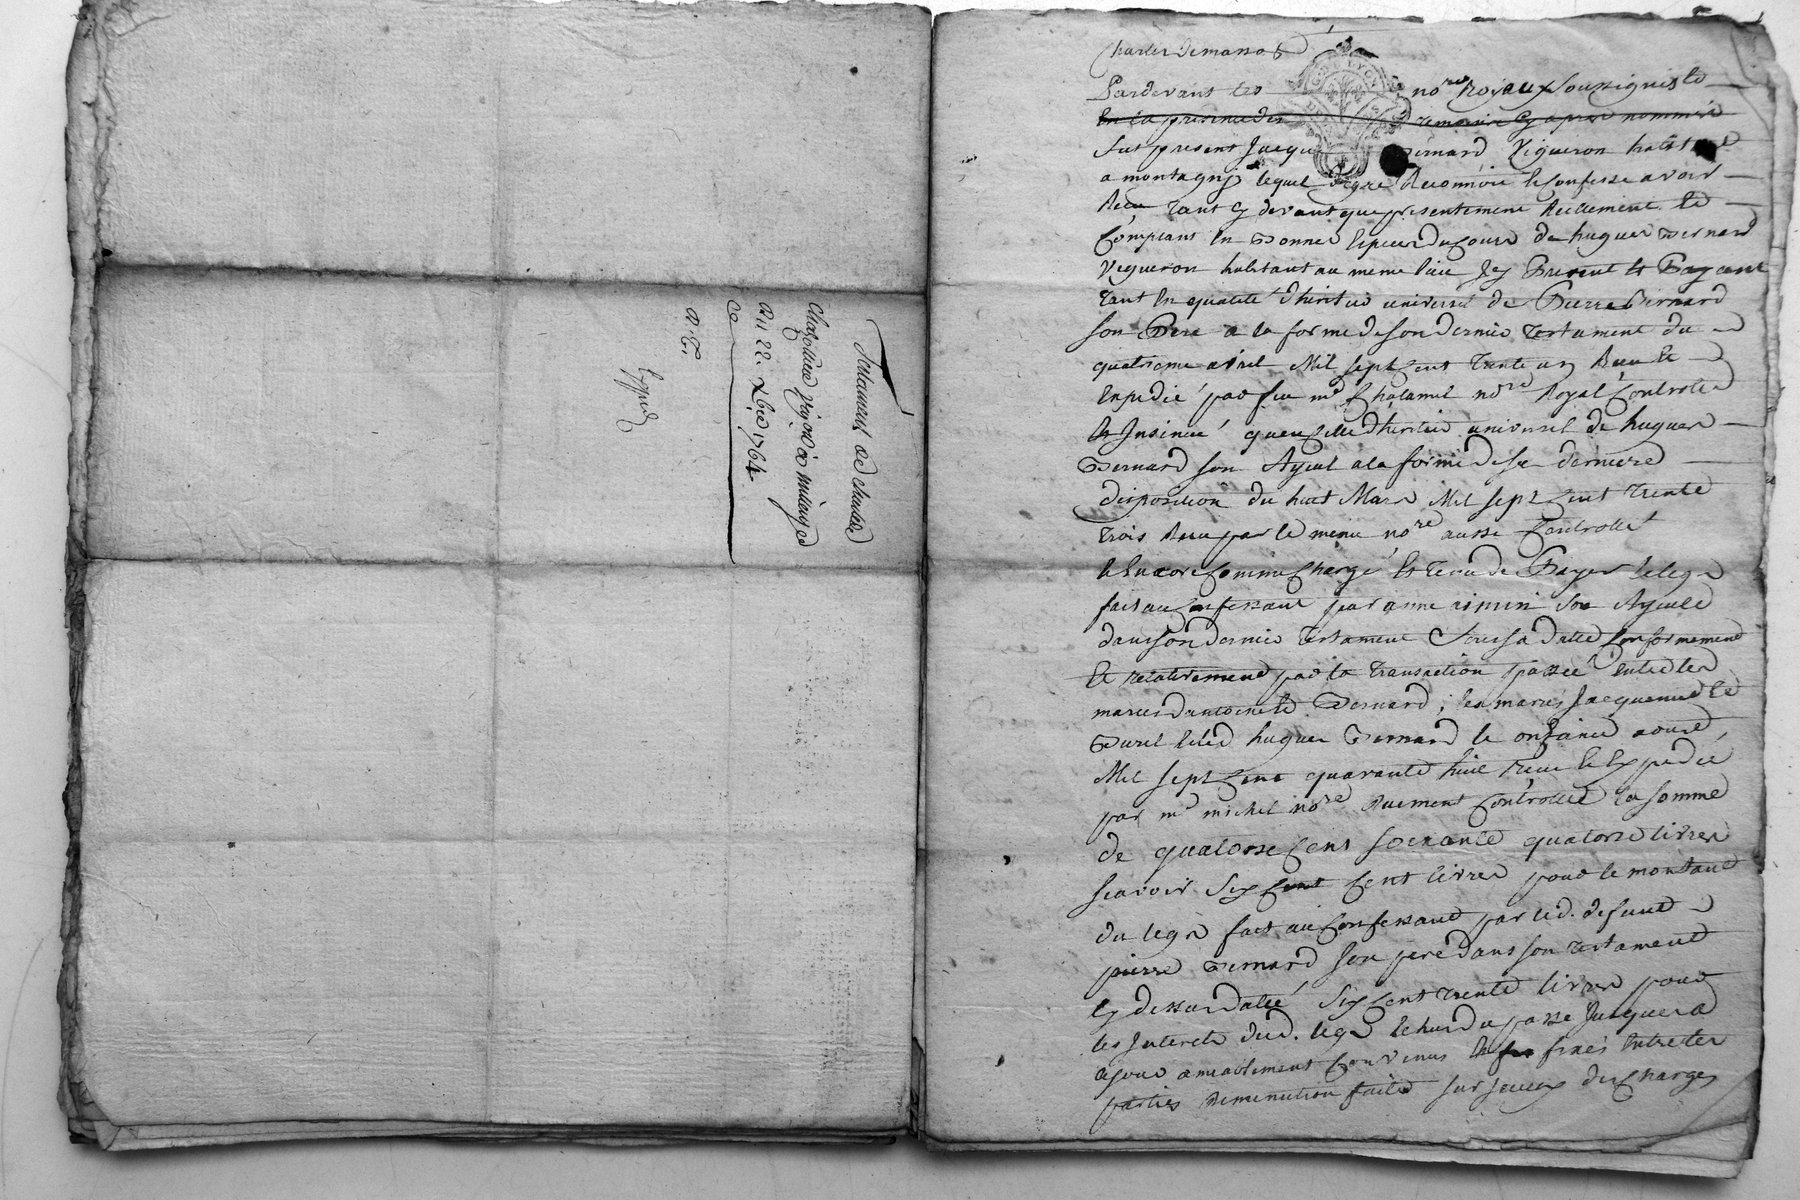 Testament de claude
vigneron à
Du 22. Xbre 1764
Exped
Pardevant les nores royaux soussignés
En la presence des temoins cy apres nommés
fut present Jacque Bernard Vigneron habitant
a montagny lequel degré Reconnoit et confesse avoir
Receu tant cy devant que presentement Reellement et
Comptant En bonnes Especes du cours de hugues Bernard
Vigneron habitant au meme lieu Icy Present et Payant
tant En qualité d'heritier universel de Pierre Bernard
son Pere a la forme de son dernier testament du
quatrieme avril Mil sept Cent trente un Receu Et
Expedié par feu me Chalamel nore Royal Controllé
Et Insinué qu'en celle d'heritier universel de hugues
Bernard son Ayeul a la forme de sa derniere
disposition du huit Mars Mil sept Cent trente
trois Receu par le meme nore aussi Controllé
Et Encore Comme Chargé Et tenu de Payer le legs
fait au Confessant par anne son Ayeule
dans son dernier testament sous sa datte Conformement
Et relativement par la transaction passée Entre les
mariés d'antoinette Bernard; les mariés Jacquemet Et
Burel Et led hugues Bernard le onzième aoust
Mil sept Cent quarante huit receu Et Expedié
par me michel nore duement Controllée la somme
de quatorse Cent soixante quatorse livres
scavoir six Cent livres pour le montant
du legs fait au Confessant par led. defunt
pierre Bernard son pere dans son testament
Cy dessus datté six Cent trente livres pour
les Interets dud. legs Echus du passé Jusques a
ce jour amiablement Convenus Et fixés Entre les
parties diminution faite sur Iceux des Charges